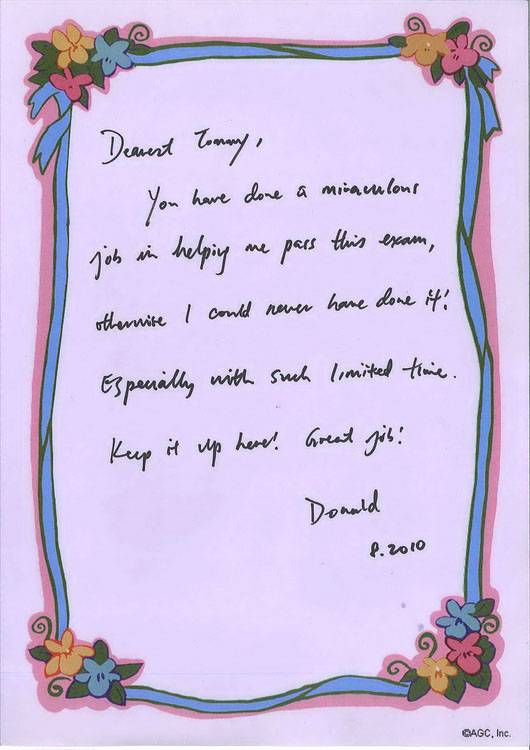 Dearest Tommy,
You have done a miraculous
job in helping me pass this exam,
otherwise I could never have done it!
Especially with such limited time.
Keep it up here! Great job!
Donald
8.2010
©AGC, Inc.